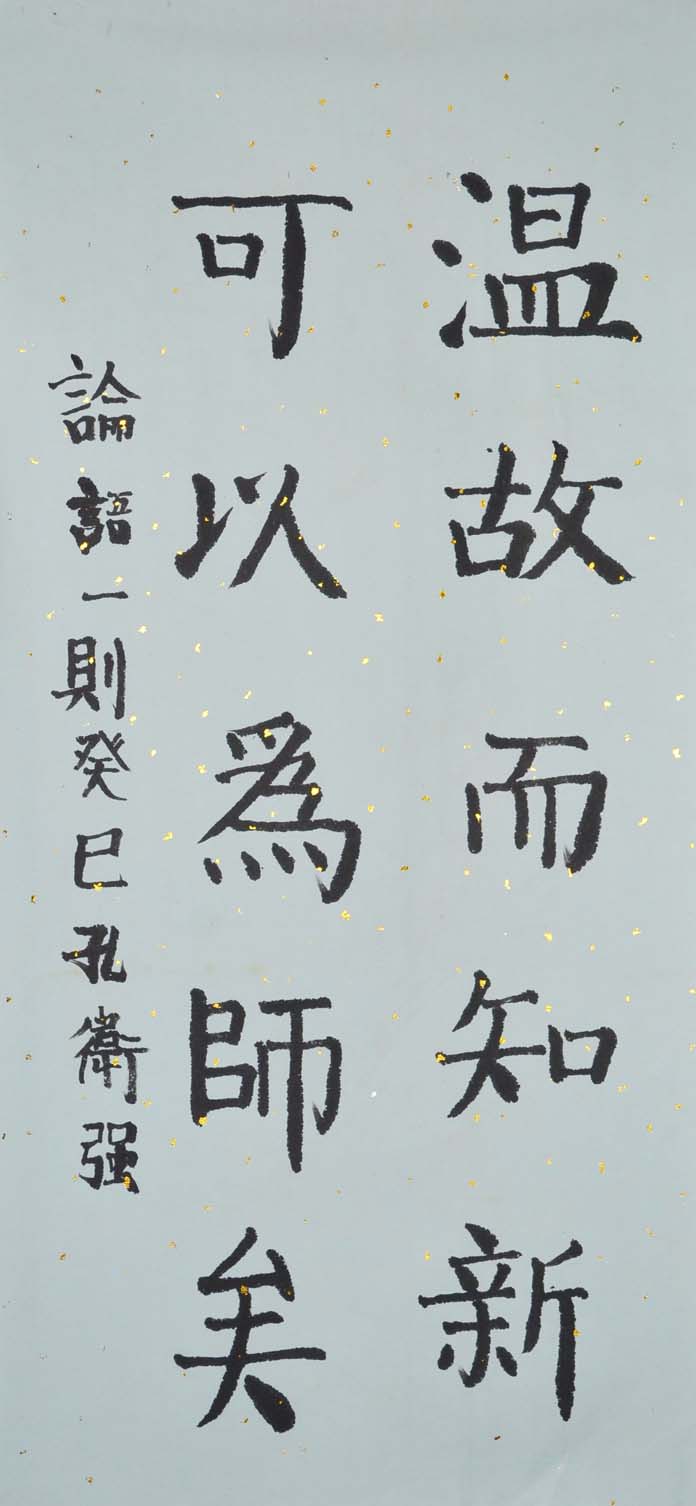 温故而知新
可以為師矣
論語一則癸巳孔衛强